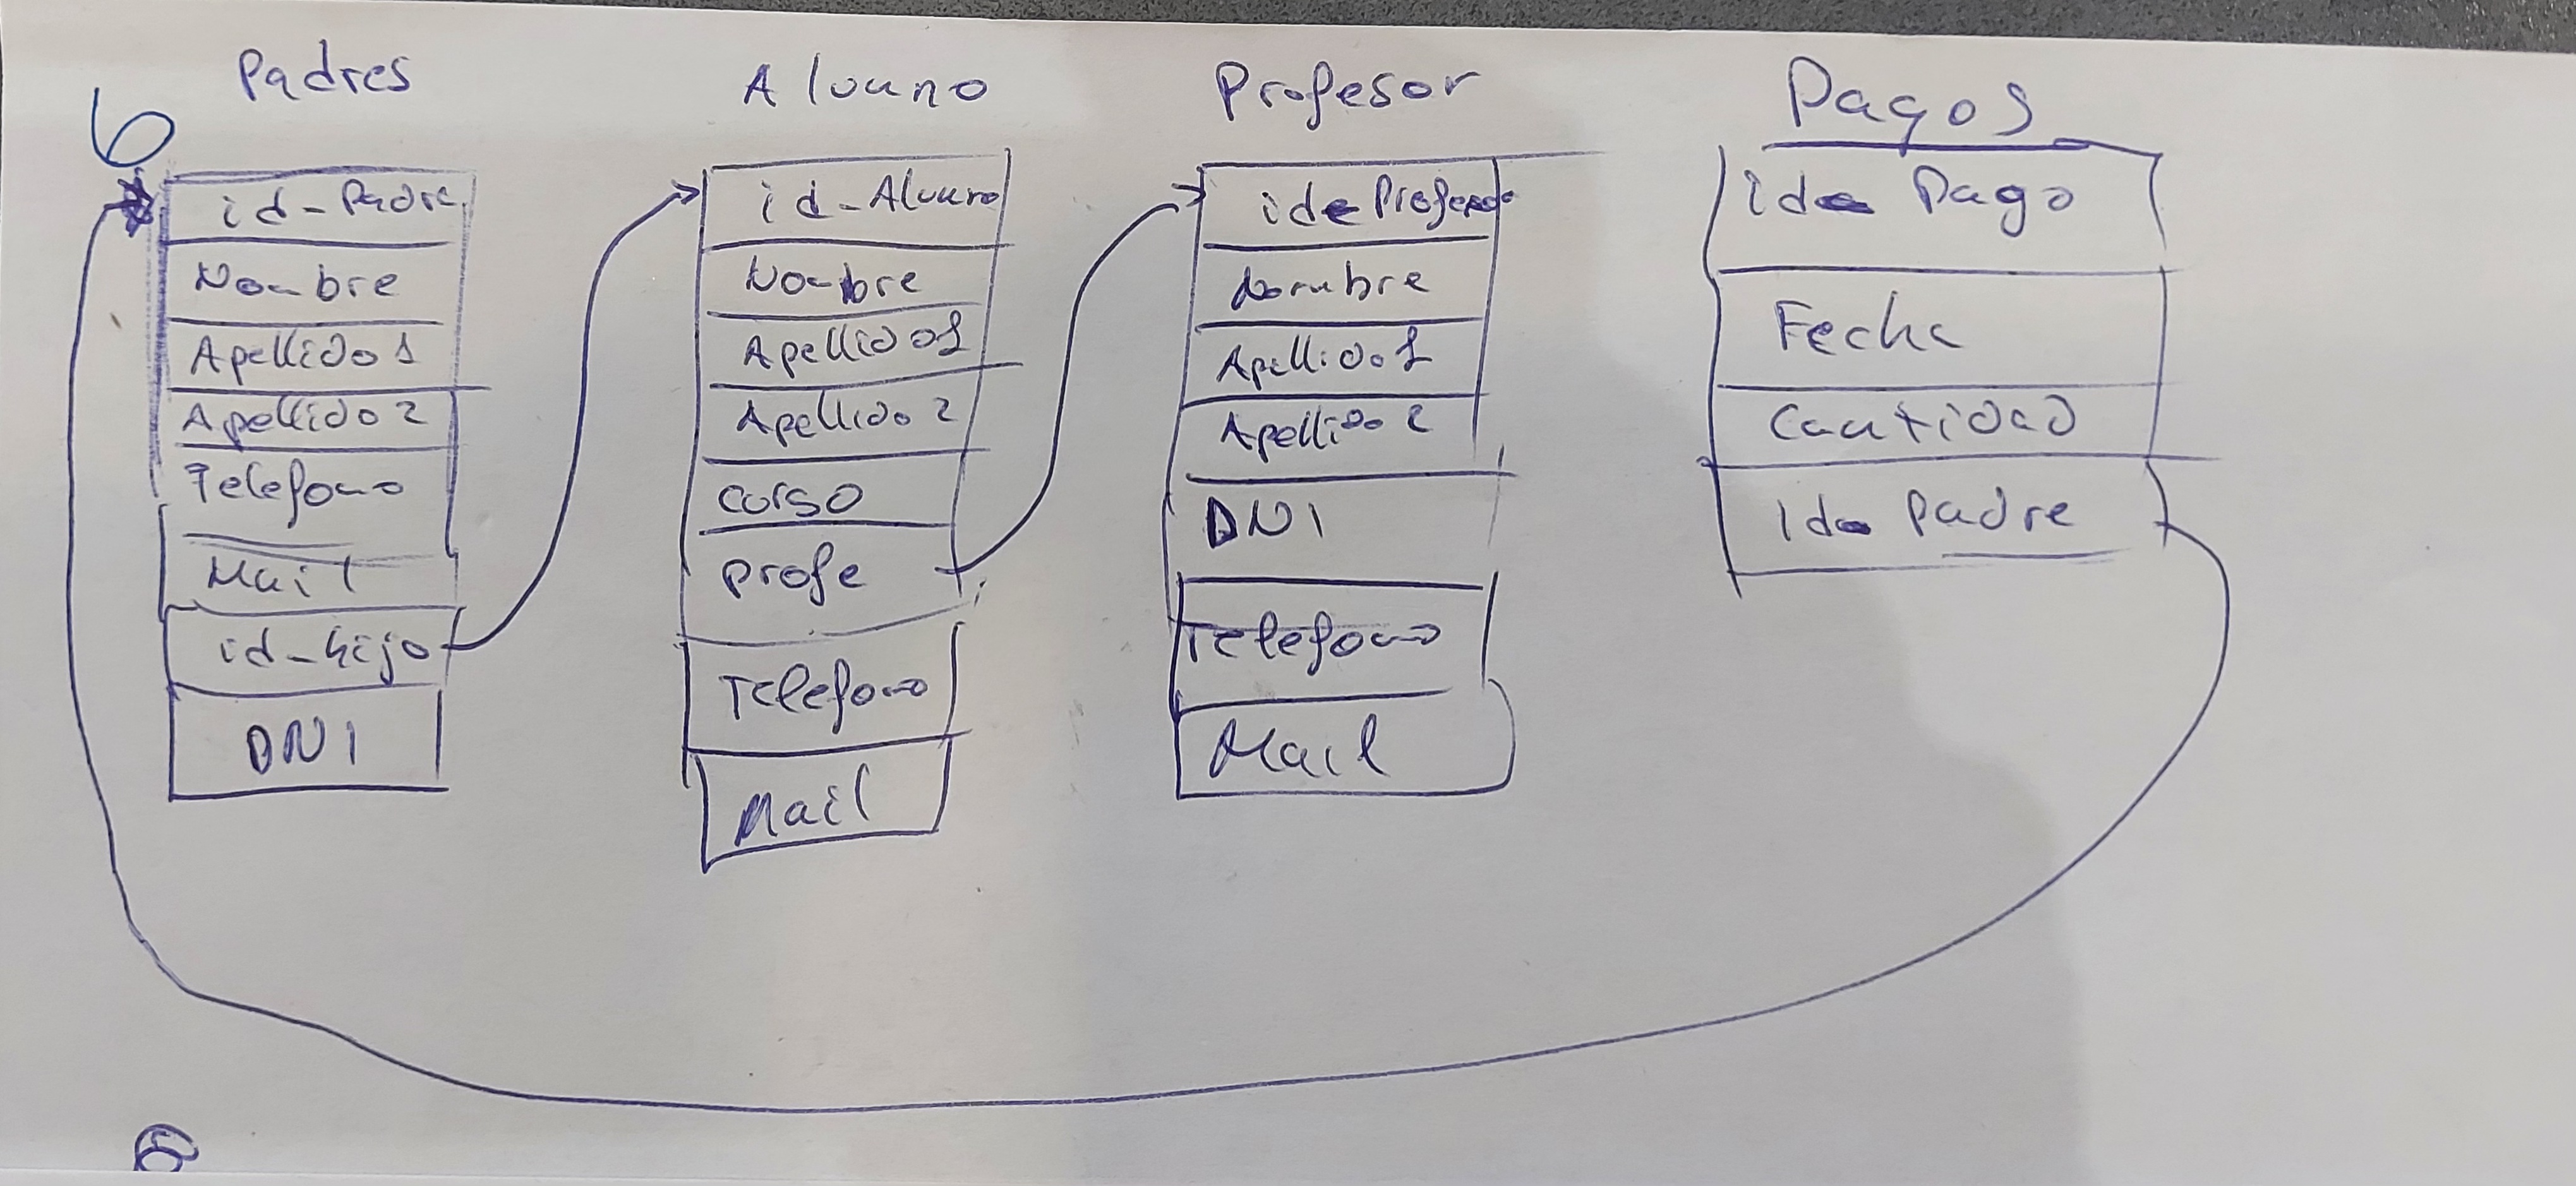 Padres
id-Padre
Nombre
Apellido 1
Apellido 2
Telefono
Mail
id-hijo
DNI
Alumno
id-Alumno
Nombre
Apellido 1
Apellido 2
curso
profe
Telefono
Mail
Profesor
id Profesor
Nombre
Apellido 1
Apellido 2
DNI
Telefono
Mail
Pagos
id Pago
Fecha
Cantidad
Id Padre